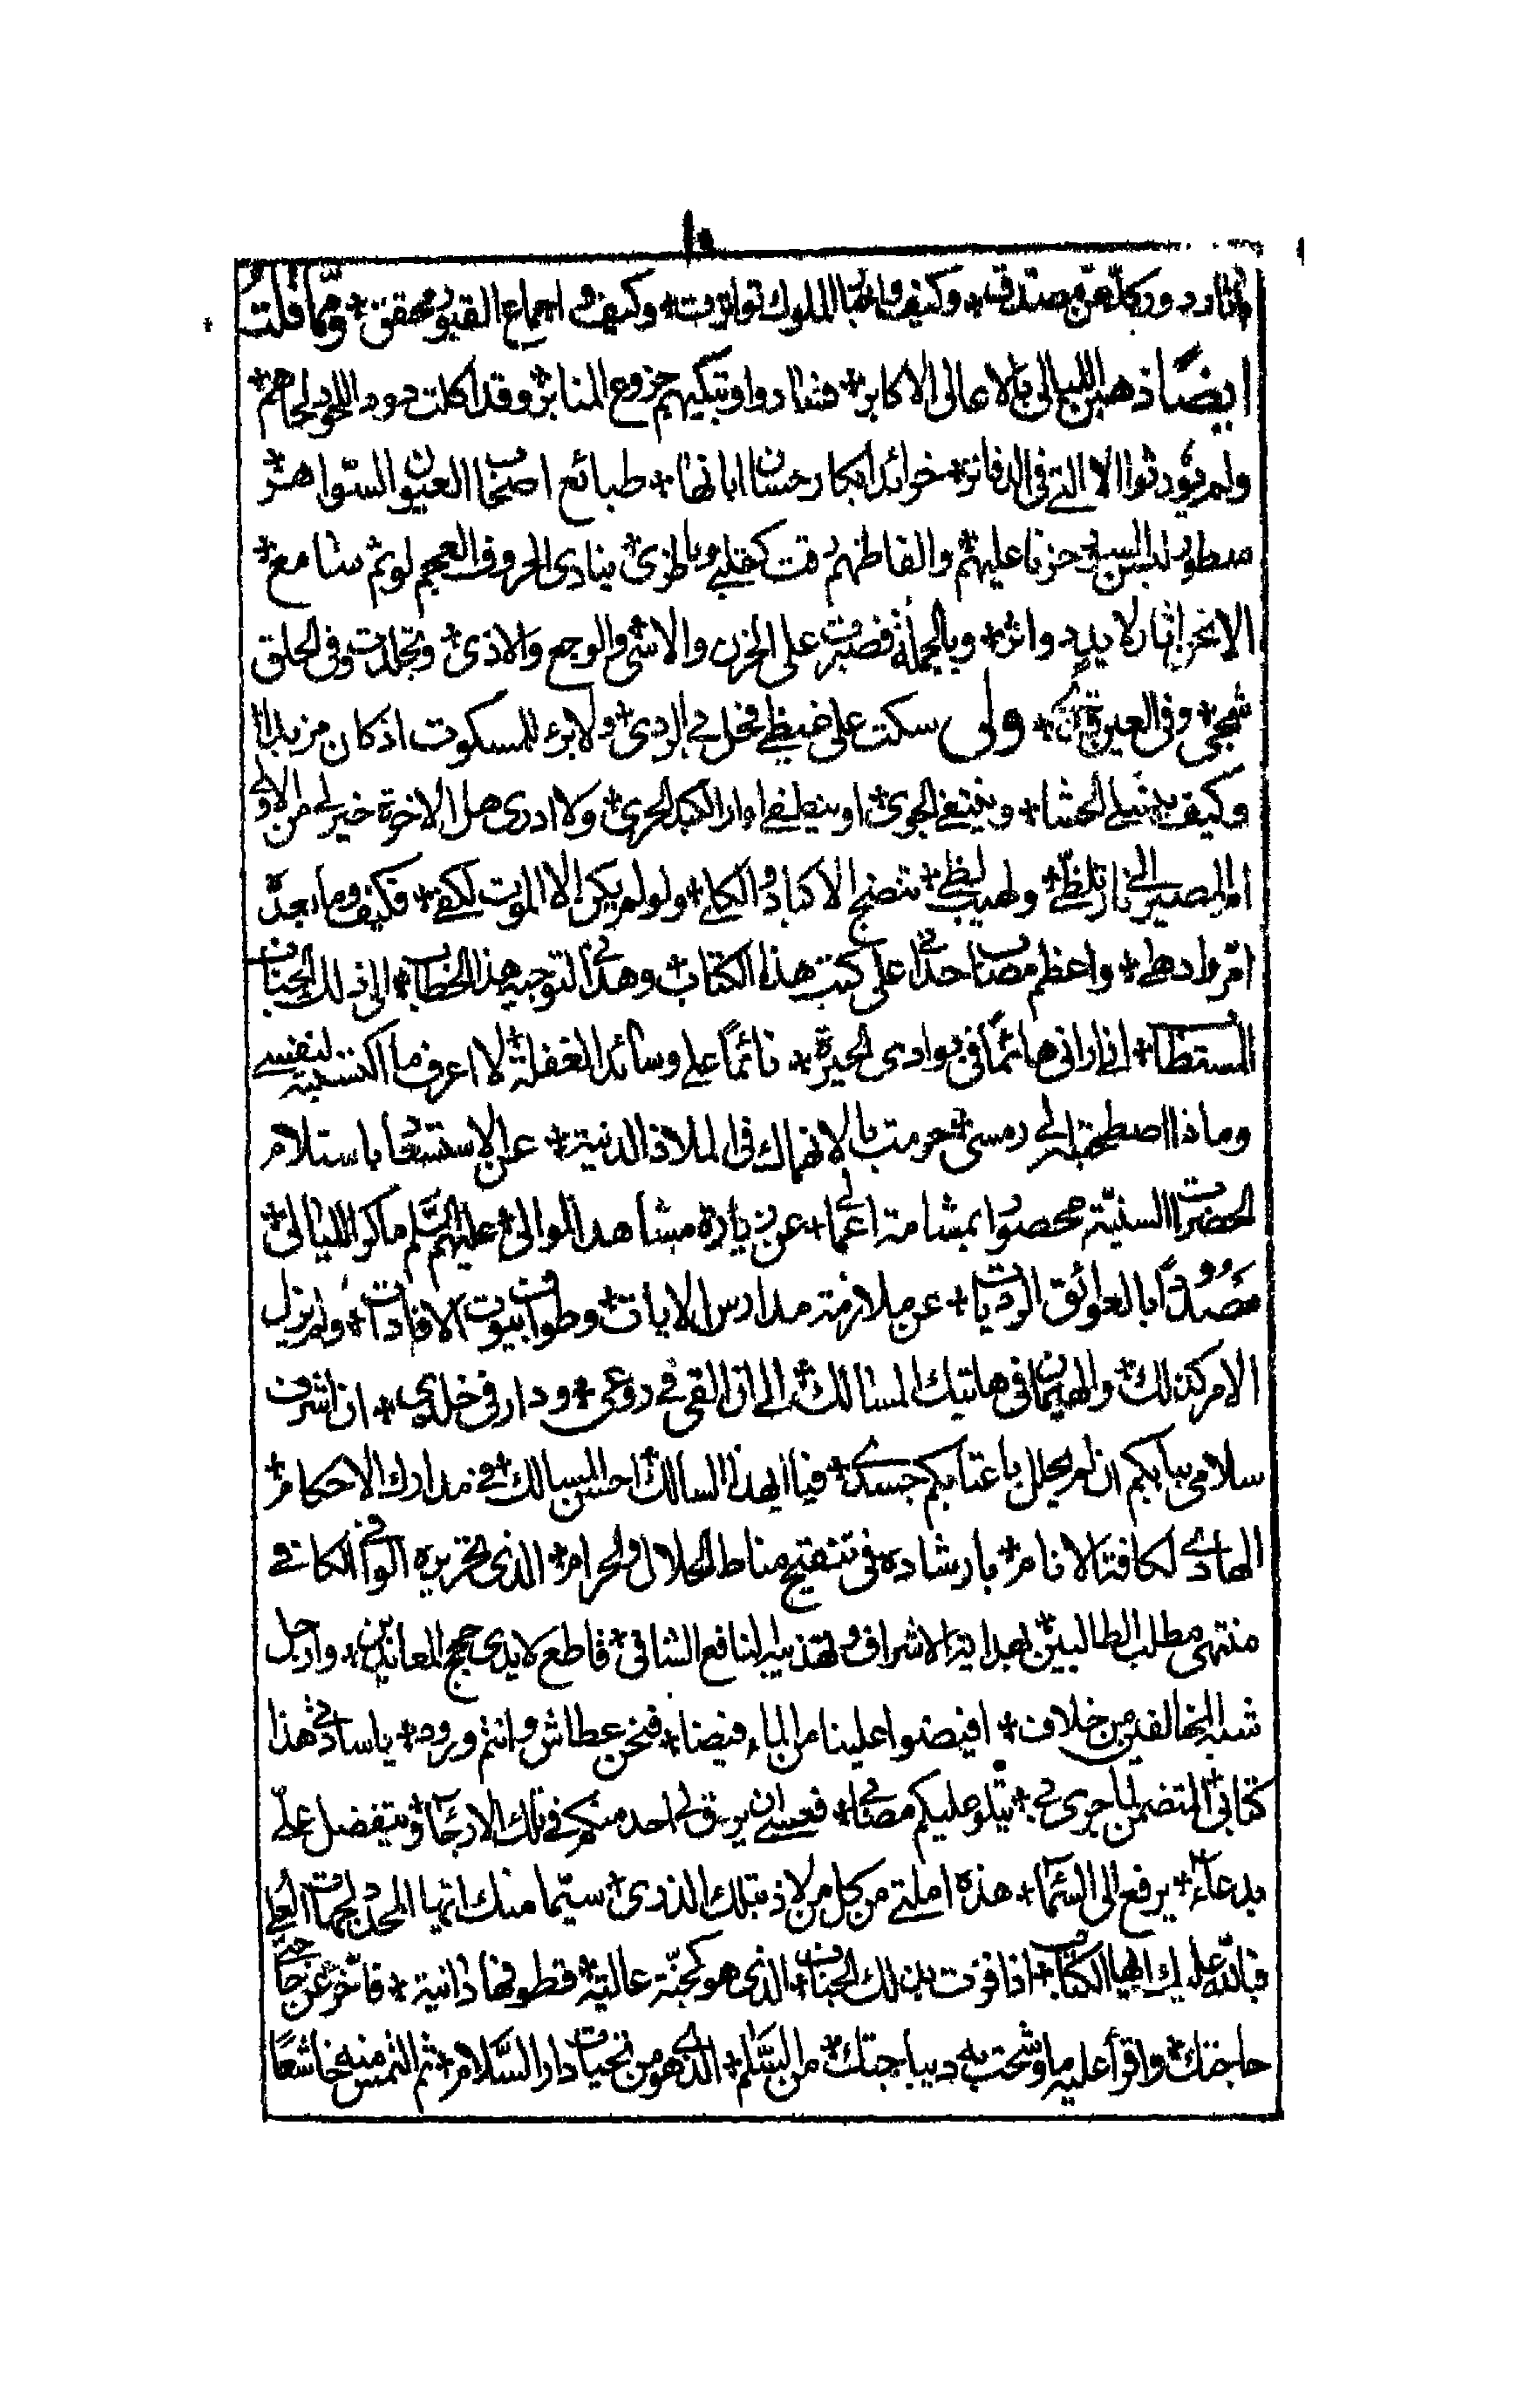 ١٥
وكيف فانها الملوك تواترت * وكيف و اجماع القبور محقق * ومما قلت
ايضًا ذهبن الليالى بالاعالى الاكابر * فنادوا وتبكيهم جزوع المنابر * وقد اكلت دود اللحود لحاهم *
ولم يورثوا الا التى فى الدفاتر * خرائد ابكار حسان اباتها * طبائع اصحاب العيون السواهر *
سطور لبسن حزنا عليهم * والفاظهم رقت كقلبى وناظرى * ينادى الحروف العجم لو ثم سامع *
الا نحن اثار لا يد دواثر * وبالجملة فصبرت على الحزن والاسى والوجع والاذى * وتجلدت وفى الحلق
شجى * وفى العين قذى * ولى سكت على غيظى فخل بى الردى * ولا برء للمسكوت اذ كان مزبدا
وكيف الحشا * وينتفى الجوى * او ينطفى اوار الكبد الحرى * ولا ادرى هل الاخرة خير لى من الاولى
ام المصير الى نار تلظى * ولهيب لظى * تنضج الاكباد والكلى * ولو لم يكن الا الموت لكفى * فكيف وما بعد
امر وادهى * واعظم مصاب حدانى على كتب هذا الكتاب * وهدانى لتوجيه هذا الخطاب * الى ذلك الجناب
المستطاب * انى ارانى هائمًا فى بوادى الحيرة * نائمًا على وسائد الغفلة * لا اعرف ما اكتسبته لنفسى
وماذا اصطحبته الى رمسى * حرمت بالانهماك فى الملاذ الدنية * عن الاستسعاد باستلام
الحضرات السنية * محصورا بمشامة اعمالى * عن زيارة مشاهد الموالى * عليهم السلم ما كر الليالى *
مصدودًا بالعوائق الرديات * عن ملازمة مدارس الايات * وطواف بيوت الافادات * ولم يزل
الامر كذلك * والهيمان فى هاتيك المسالك * الى ان القى فى روعى * ودار فى خلدى * ان اشرف
سلامى ببابكم ان لم يحلل باعتابكم جسدى * فيا ايهذا السالك احسن المسالك * فى مدارك الاحكام *
الهادى لكافة الانام * بارشاده فى تنقيح مناط الحلال والحرام * الذى تحريره الوافى الكافى
منتهى مطلب الطالبين * بهداية الاشراف وتهذيبه النافع الشافى * قاطع لايدى حجج المعاندين * وارجل
شبه المخالفين من خلاف * افيضوا علينا من الماء فيضا * فنحن عطاش وانتم ورود * يا ساداتى هذا
كتابى المتضمن لما جرى بى * يتلو عليكم مصائبى * فعسى ان يرق لى احد منكم فى تلك الارجاء * ويتفضل على
بدعاء * يرفع الى السماء * هذه املتى من كل من لاذ بتلك الذرى * سيما منك ايها المجد لجهات العلى
فبالله عليك ايها الكتاب * اذا فزت بذلك الجناب * الذى هو كجنة عالية * قطوفها دانية * فاخبر عن جانبى
حاجتك * واقرأ عليه ما وشحت به ديباجتك * من السلم * الذى هو من تحيات دار السلام * ثم التمس منه خاشعًا